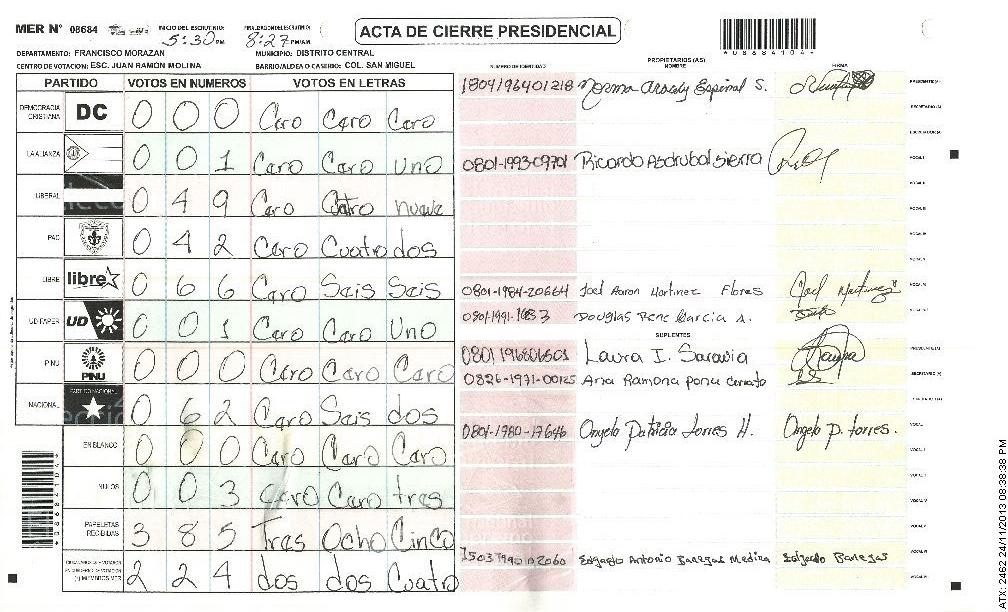 MER N° 08684 INICIO DEL ESCRUTINIO: 5:30 PM FINALIZACION DEL ESCRUTINIO: 8:27 PM/AM ACTA DE CIERRE PRESIDENCIAL
08684104
DEPARTAMENTO: FRANCISCO MORAZAN MUNICIPIO: DISTRITO CENTRAL
CENTRO DE VOTACION: ESC. JUAN RAMÓN MOLINA BARRIO/ALDEA O CASERIO: COL. SAN MIGUEL
PARTIDO VOTOS EN NUMEROS VOTOS EN LETRAS
NUMERO DE IDENTIDAD PROPIETARIOS (AS) NOMBRE FIRMA
DEMOCRACIA CRISTIANA DC 0 0 0 Caro Caro Caro
LA ALIANZA 0 0 1 Caro Caro Uno
LIBERAL 0 4 9 Caro Catro nueve
PAC 0 4 2 Caro Cuatro dos
LIBRE libre 0 6 6 Caro Sais Sais
UD/FAPER UD 0 0 1 Caro Caro Uno
PINU PINU 0 0 0 Caro Caro Caro
NACIONAL PARTIDO NACIONAL 0 6 2 Caro Sais dos
EN BLANCO 0 0 0 Caro Caro Caro
NULOS 0 0 3 Caro Caro tres
PAPELETAS RECIBIDAS 3 8 5 Tres Ocho Cinco
(*) MIEMBROS MER 2 2 4 dos dos Cuatro
1804196401218 Norma Aracely Espinal S. PRESIDENTE(A)
SECRETARIO (A)
ESCRUTADOR(A)
0801-1993-09701 Ricardo Asdrubal Sierra VOCAL I
VOCAL II
VOCAL III
VOCAL IV
VOCAL V
0801-1984-20664 Joel Aaron Martinez Flores Joel Martinez VOCAL VI
Douglas Rene Garcia A.
SUPLENTES
0801196806501 Laura I. Saravia PRESIDENTE (A)
0826-1971-00125 Ana Ramona SECRETARIO (A)
0801-1980-17646 Angela Patricia Torres H. Angela P. torres. VOCAL I
Edgardo Antonio Banegas Medina Edgardo Banegas
08684104
ATX: 2462 24/11/2013 08:38:38 PM